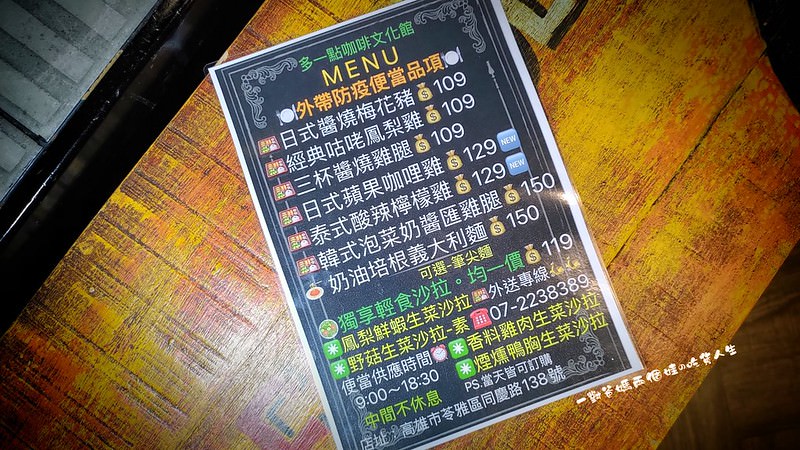 多一點咖啡文化館
MENU
外帶防疫便當品項
日式醬燒梅花豬 109
經典咕咾鳳梨雞 109
三杯醬燒雞腿 109
日式蘋果咖哩雞 129 NEW
泰式酸辣檸檬雞 129 NEW
韓式泡菜奶醬匯雞腿 150
奶油培根義大利麵 150
可選-筆尖麵
獨享輕食沙拉。均一價 119
鳳梨鮮蝦生菜沙拉 外送專線
野菇生菜沙拉-素 07-2238389
便當供應時間 香料雞肉生菜沙拉
9:00~18:30 煙燻鴨胸生菜沙拉
中間不休息 PS.當天皆可訂購
店址:高雄市苓雅區同慶路138號
一對爸媽兩個娃の吃貨人生